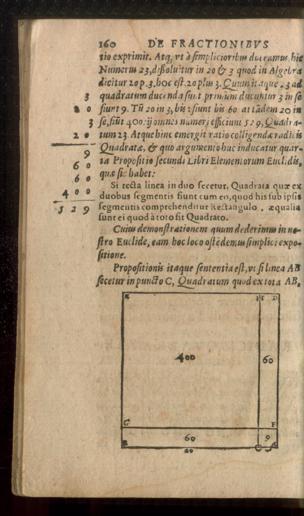 160 DE FRACTIONIBVS
tio exprimit. Atq, vt à simplicioribus ducamus, hic
Numerus 23, dissoluitur in 20 & 3 quod in Algebra
dicitur 20 p. 3, hoc est. 20 plus 3. Cum itaque, 3 ad
quadratum ducenda sunt primùm ducuntur 3 in se
fiunt 9. Tũ 20 in 3, bis & fiunt bis 60. at tãdem 20 in
se, fiũt 400: ij omnes numeri efficiunt 529, Quadra-
tum 23. Atque hinc emergit ratio colligendæ radicis
Quadratæ, & quo argumento huc inducatur quar-
ta Propositio secundi Libri Elementorum Euclidis,
quæ sic habet:
Si recta linea in duo secetur, Quadrata quæ ex
duobus segmentis fiunt cum eo, quod his sub ipsis
segmentis comprehenditur Rectangulo, æqualia
sunt ei quod à toto fit Quadrato.
Cuius demonstrationem quum dederimus in no-
stro Euclide, eam hoc loco ostẽdemus simplici expo-
sitione.
Propositionis itaque sententia est, vt si linea AB
secetur in puncto C, Quadratum quod ex tota AB,
3
2 0
3
2 0
9
6 0
6 0
4 0 0
5 2 9
D
400
60
C
F
60
9
20